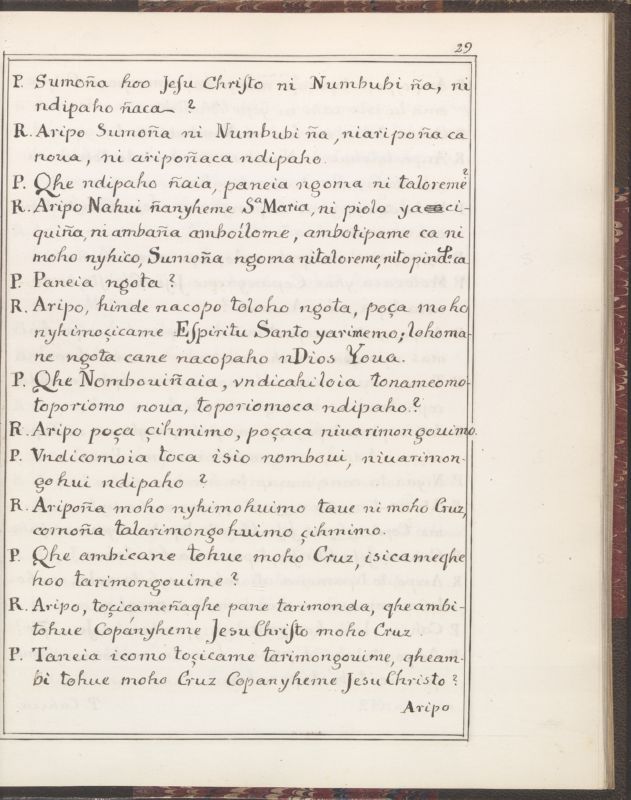 29
P. Sumoña hoo Jesu Christo ni Numbubi ña, ni
ndipaho ñaca ?
R. Aripo Sumoña ni Numbubi ña, niaripoña ca
noua, ni ariponãca ndipaho.
P. Qhe ndipaho ñaia, paneia ngoma ni taloreme?
R. Aripo Nahui ñanyheme Sª Maria, ni piolo ya ci-
quiña, ni ambaña amboílome, ambotipame ca ni
moho nyhico, Sumoña ngoma nitaloreme, nito ca
P. Paneia ngota ?
R. Aripo, hinde nacopo toloho ngota, poça moho
nyhimoçicame Espiritu Santo yarinemo; lohoma-
ne ngota cane nacopaho nDios Youa.
P. Qhe Nombouiñaia, vndicahiloia tonameomo-
toporiomo noua, toporiomoca ndipaho.?
R. Aripo poça çihmimo, poçaca niuarimongouimo.
P. Vndicomoia toca isio nomboui, niuarimon-
gohui ndipaho ?
R. Aripoña moho nyhimohuimo taue ni moho Cruz,
comoña talarimongohuimo çihmimo.
P. Qhe ambicane tohue moho Cruz, isicameqhe
hoo tarimongouime ?
R. Aripo, toçicameñaqhe pane tarimonda, qheambi-
tohue Copányheme Jesu Christo moho Cruz.
P. Taneia icomo toçicame tarimongouime, qheam-
bi tohue moho Cruz Copanyheme Jesu Christo ?
Aripo